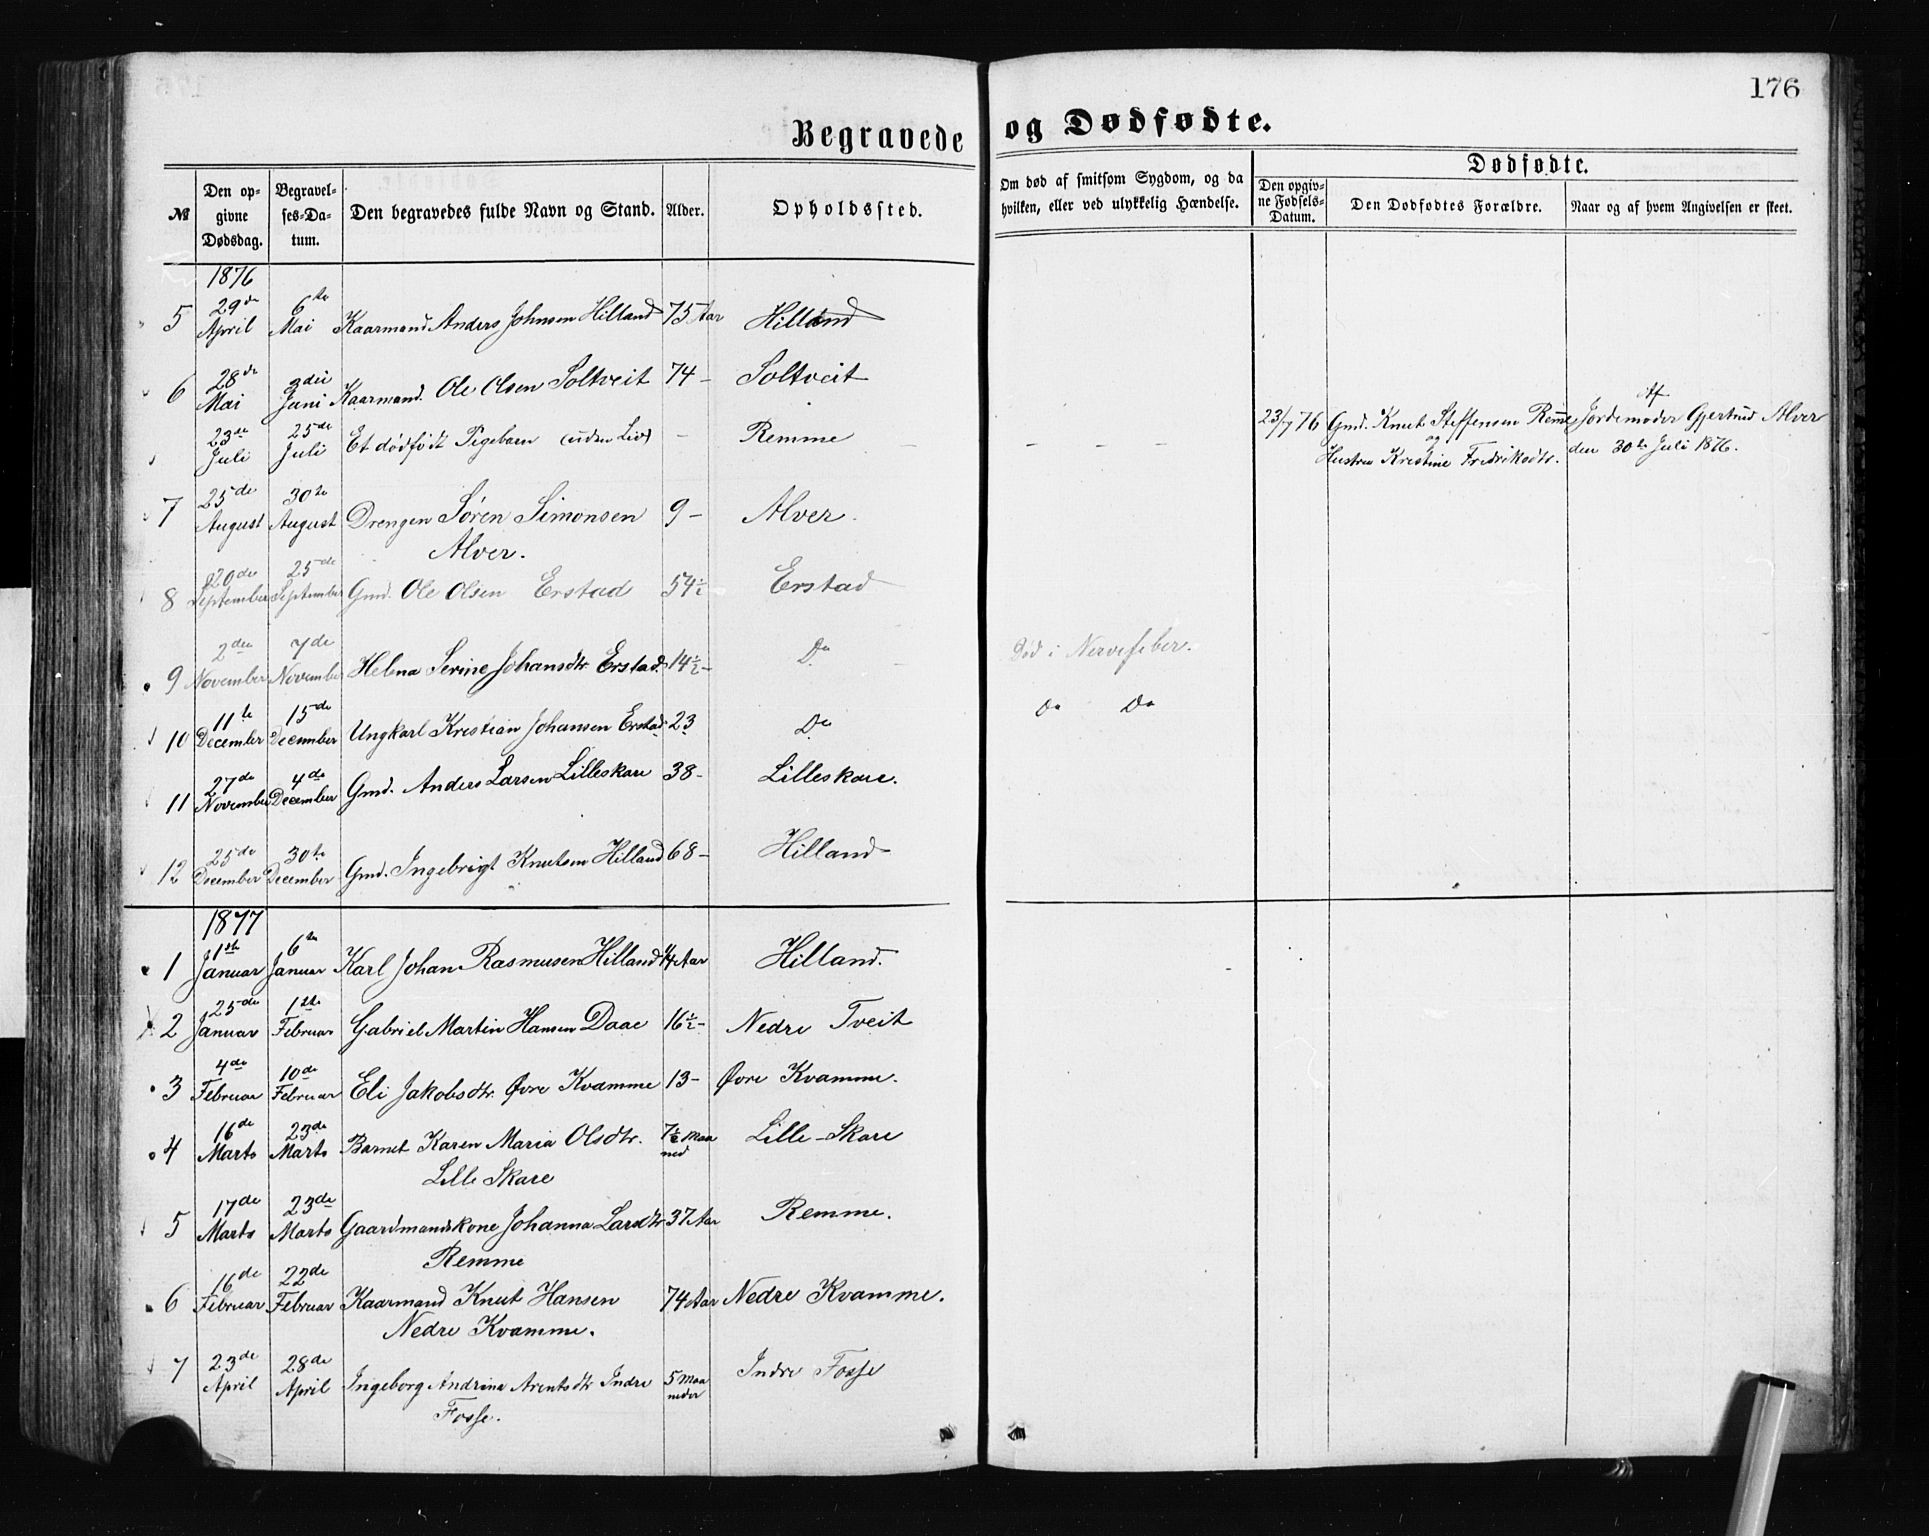 176
Begravede og Dødfødte.
№ Den opgivne Dødsdag. Begravelses-Datum. Den begravedes fulde Navn og Stand. Alder. Opholdssted. Om død af smitsom Sygdom, og da hvilken, eller ved ulykkelig Hændelse. Dødfødte. Den opgivne Fødsels-Datum. Den Dødfødtes Forældre. Naar og af hvem Angivelsen er skeet.
1876
5 29de April 6te Mai Kaarmand Anders Johnsen Hilland 75 Aar Hilland
6 28de Mai 3die Juni Kaarmand Ole Olsen Soltveit 74 - Soltveit
23de Juli 25de Juli Et dødfødt Pigebarn (uden Liv) - Remme - - - 23/7 76 Gmd. Knut Steffensen Remme og Hustru Kristine Fredriksdtr. Af Jordemoder Gjertrud Alver den 30te Juli 1876.
7 25de August 30te August Drengen Søren Simonsen 9 - Alver.
Alver.
8 20de September 25de September Gmd. Ole Olsen Erstad 54½ Erstad
9 2den November 7de November Helena Serine Johansdtr Erstad. 14½ - Do Død i Nervefeber.
10 11te December 15de December Ungkarl Kristian Johansen Erstad 23 Do Do Do
11 27de November 4de December Gmd. Anders Larsen Lilleskare 38 - Lilleskare.
12 25de December 30te December Gmd. Ingebrigt Knutsen Hilland 68 - Hilland
1877
1 1ste Januar 6te Januar Karl Johan Rasmusen Hilland 14 Aar Hilland.
2 25de Januar 1ste Februar Gabriel Martin Hansen Daae 16½ - Nedre Tveit
3 4de Februar 10de Februar Eli Jakobsdtr. Øvre Kvamme 13 - Øvre Kvamme.
4 16de Marts 23de Marts Barnet Karen Maria Olsdtr. 7½ Maaned Lille-Skare
Lille Skare
5 17de Marts 23de Marts Gaardmandskone Johanna Larsdtr 37 Aar Remme.
Remme
6 16de Februar 22de Februar Kaarmand Knut Hansen 74 Aar Nedre Kvamme.
Nedre Kvamme.
7 23de April 28de April Ingeborg Andrina Arentsdtr Indre 5 Maaneder Indre Fosse
Fosse.